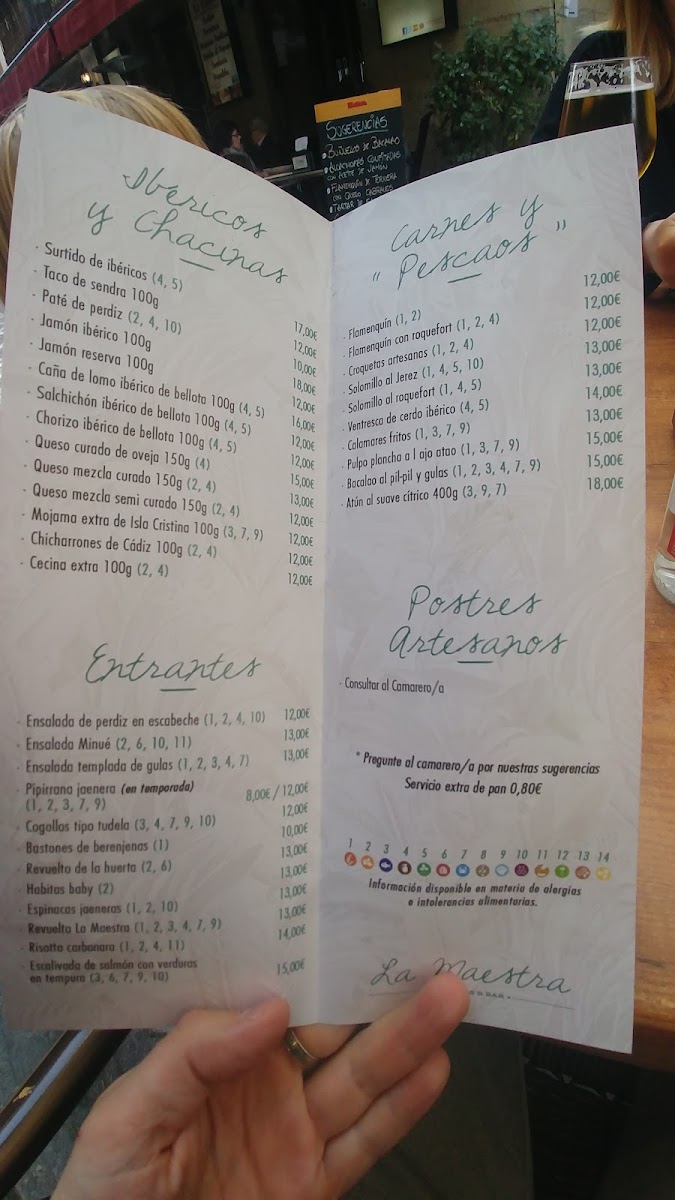 SUGERENCIAS
• BUÑUELOS DE BACALAO
• ALCACHOFAS CONFITADAS
CON ACEITE DE JAMÓN
• FLAMENQUÍN DE TERNERA
CON QUESO CABRALES
• TARTAR DE
Ibéricos
y Chacinas
· Surtido de ibéricos (4, 5) 17,00€
· Taco de sendra 100g 12,00€
· Paté de perdiz (2, 4, 10) 10,00€
· Jamón ibérico 100g 18,00€
· Jamón reserva 100g 12,00€
· Caña de lomo ibérico de bellota 100g (4, 5) 16,00€
· Salchichón ibérico de bellota 100g (4, 5) 12,00€
· Chorizo ibérico de bellota 100g (4, 5) 12,00€
· Queso curado de oveja 150g (4) 15,00€
· Queso mezcla curado 150g (2, 4) 13,00€
· Queso mezcla semi curado 150g (2, 4) 12,00€
· Mojama extra de Isla Cristina 100g (3, 7, 9) 12,00€
· Chicharrones de Cádiz 100g (2, 4) 12,00€
· Cecina extra 100g (2, 4) 12,00€
Entrantes
· Ensalada de perdiz en escabeche (1, 2, 4, 10) 12,00€
· Ensalada Minué (2, 6, 10, 11) 13,00€
· Ensalada templada de gulas (1, 2, 3, 4, 7) 13,00€
· Pipirrana jaenera (en temporada)
(1, 2, 3, 7, 9) 8,00€ / 12,00€
· Cogollos tipo tudela (3, 4, 7, 9, 10) 12,00€
· Bastones de berenjenas (1) 10,00€
· Revuelto de la huerta (2, 6) 13,00€
· Habitas baby (2) 13,00€
· Espinacas jaeneras (1, 2, 10) 13,00€
· Revuelto La Maestra (1, 2, 3, 4, 7, 9) 13,00€
· Risotto carbonara (1, 2, 4, 11) 14,00€
· Escalivada de salmón con verduras
en tempura (3, 6, 7, 9, 10) 15,00€
Carnes y
"Pescaos"
· Flamenquín (1, 2) 12,00€
· Flamenquín con roquefort (1, 2, 4) 12,00€
· Croquetas artesanas (1, 2, 4) 12,00€
· Solomillo al Jerez (1, 4, 5, 10) 13,00€
· Solomillo al roquefort (1, 4, 5) 13,00€
· Ventresca de cerdo ibérico (4, 5) 14,00€
· Calamares fritos (1, 3, 7, 9) 13,00€
· Pulpo plancha a l ajo atao (1, 3, 7, 9) 15,00€
· Bacalao al pil-pil y gulas (1, 2, 3, 4, 7, 9) 15,00€
· Atún al suave cítrico 400g (3, 9, 7) 18,00€
Postres
Artesanos
· Consultar al Camarero/a
* Pregunte al camarero/a por nuestras sugerencias
Servicio extra de pan 0,80€
1 2 3 4 5 6 7 8 9 10 11 12 13 14
Información disponible en materia de alergias
e intolerancias alimentarias.
La Maestra